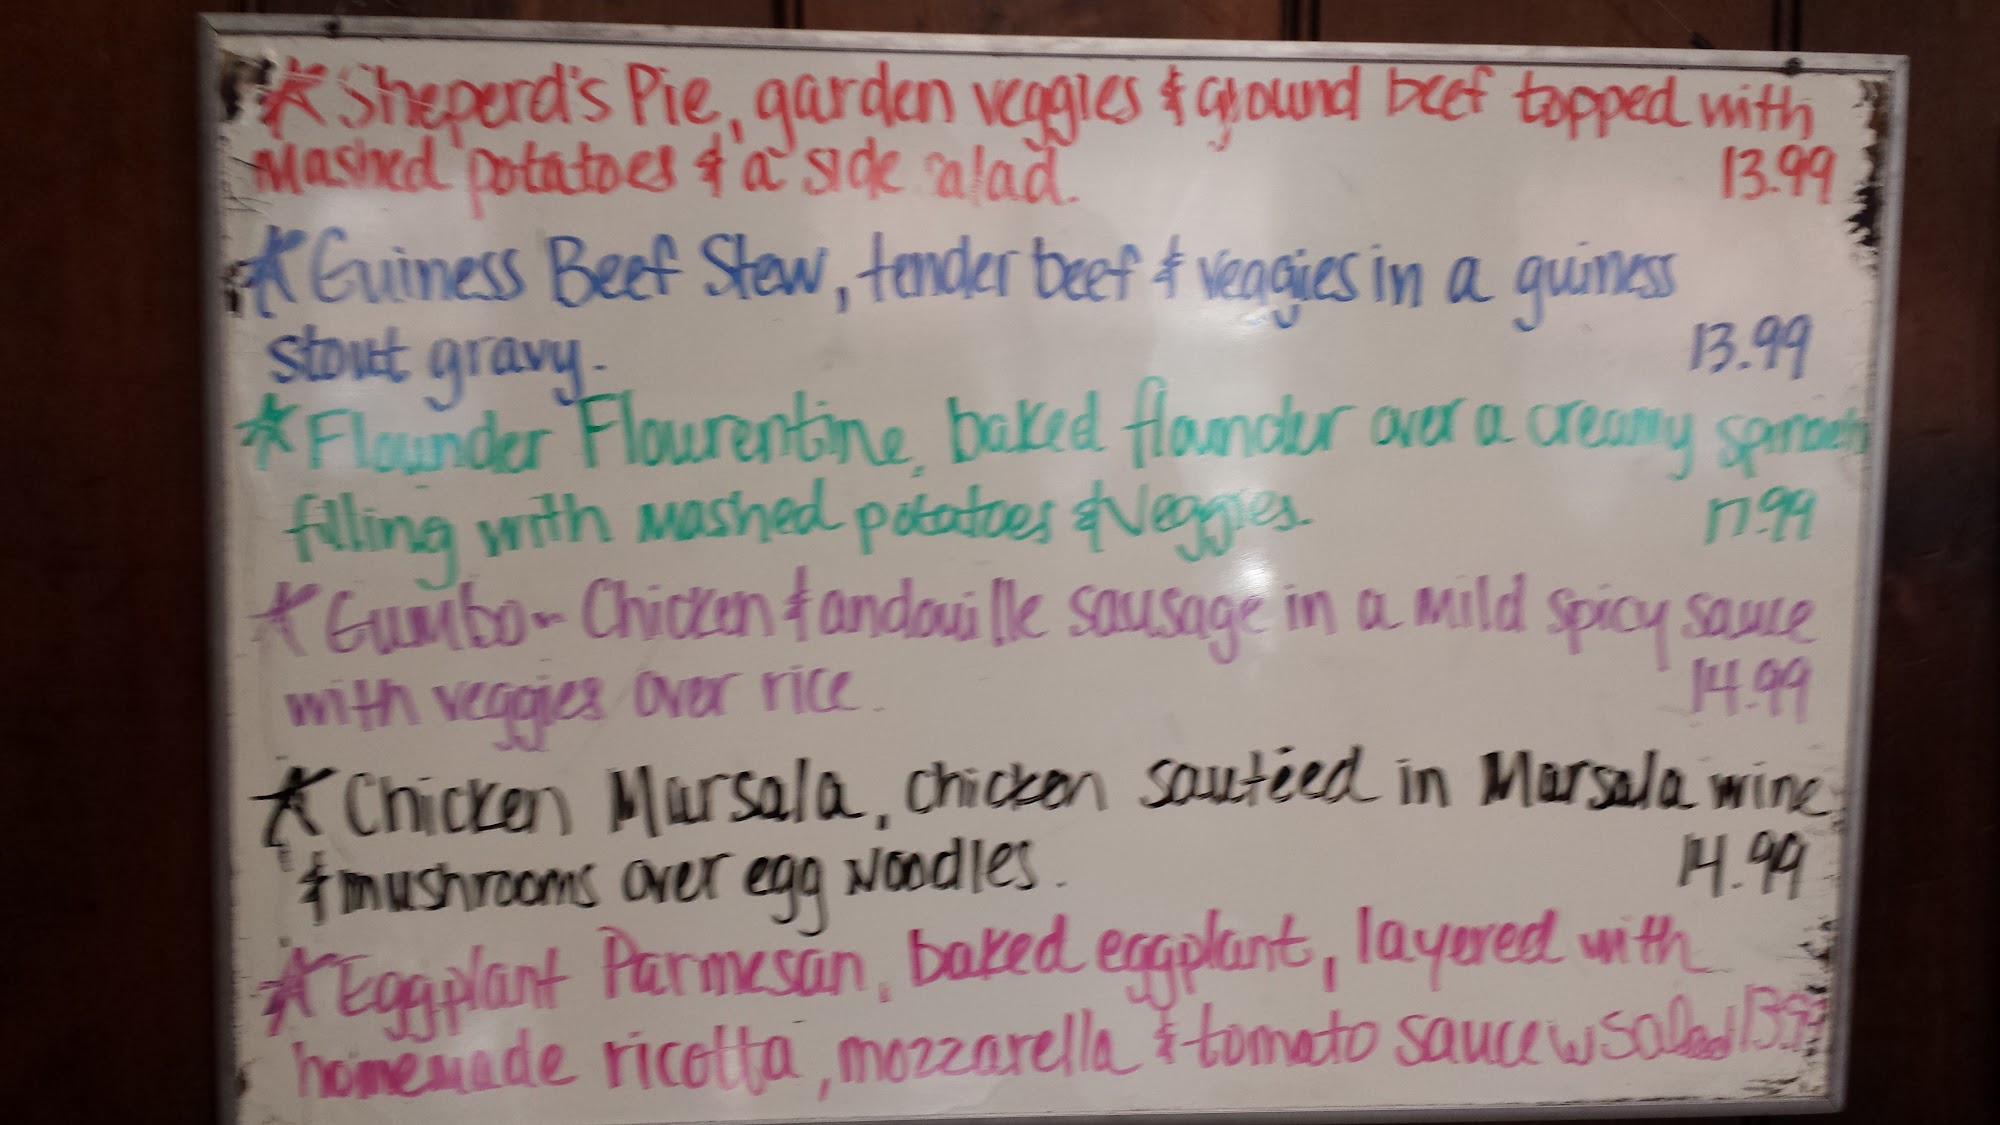 * Sheperd's Pie, garden veggies & ground beef topped with
Mashed potatoes & a side salad. 13.99
* Guiness Beef Stew, tender beef & veggies in a guiness
stout gravy. 13.99
* Flounder Flourentine, baked flounder over a creamy spinach
filling with mashed potatoes & Veggies. 17.99
* Gumbo - Chicken & andouille sausage in a mild spicy sauce
with veggies over rice. 14.99
* Chicken Marsala, chicken sautéed in Marsala wine
& mushrooms over egg Noodles. 14.99
* Eggplant Parmesan, baked eggplant, layered with
homemade ricotta, mozzarella & tomato sauce w salad